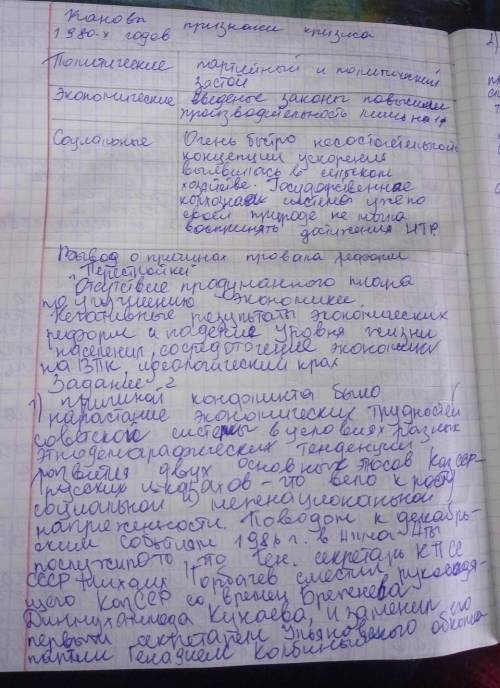 Каковы признаки кризиса
1980-х годов
Политические партийный и политический
застой
Экономические введеные законы повысили
производительность лишь на
Социальные Очень быстро несостоятельность
концепции ускорения
выявилась в сельском
хозяйстве. Государственные
система уже по
своей природе не могла
воспринять достижения НТР.
Вывод о причинах провала реформ
"Перестройки"
Отсутствие продуманного плана
по улучшению экономики.
Негативные результаты экономических
реформ и падение уровня жизни
населения, сосредоточение экономики
на ВПК, идеологический крах
Задание 2
1) Причиной конфликта было
нарастание экономических трудностей
советской системы в условиях разных
этнодемографических тенденций
развития двух основных этносов КазССР-
русских и казахов - что вело к росту
социальной и межнациональной
напряженности. Поводом к декабрь-
ским событиям 1986 г. в Алма-Аты
послужило то, что Ген. секретарь КПСС
СССР Михаил Горбачев сместил руководя-
щего КазССР со времен Брежнева
Динмухамеда Кунаева, и заменил его
первым секретарем Ульяновского обкома
партии Генадием Колбиным